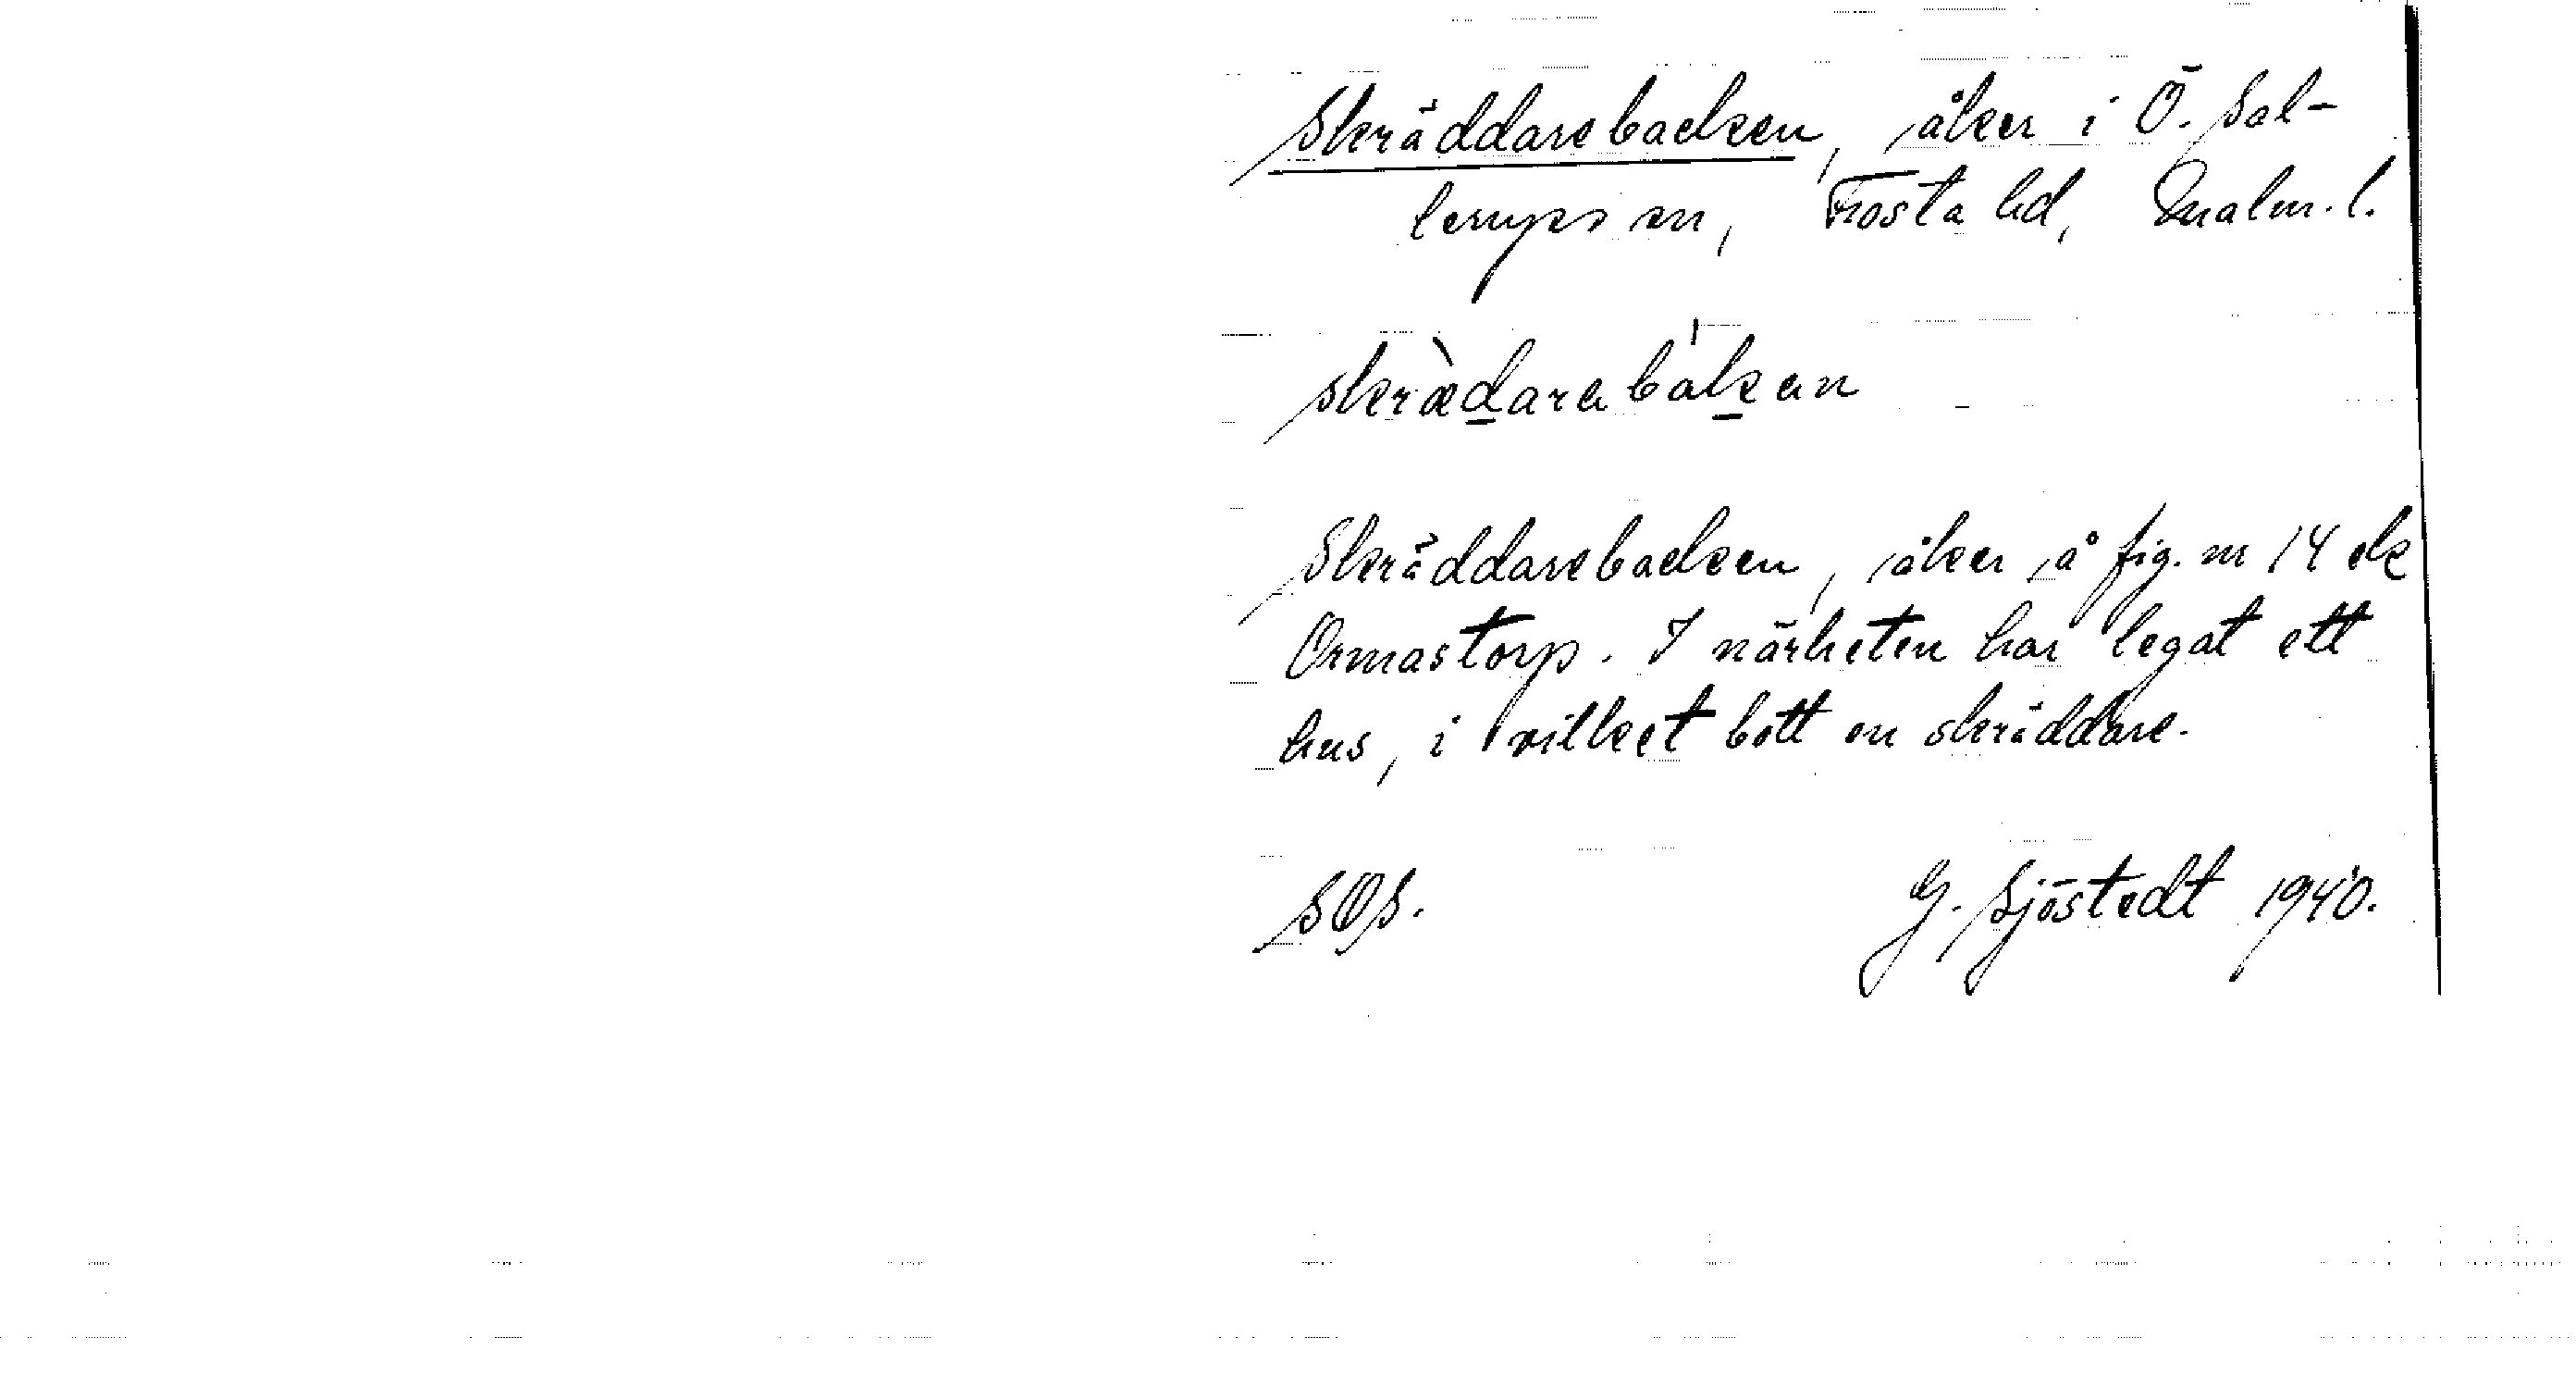 Skräddarebacken, åker i Ö. Sal-
lerups sn, Frosta hd, Malm. l.
skrædarebakan
Skräddarebacken, åker å fig. nr 14 ek
Ormastorp. I närheten har legat ett
hus, i vilket bott en skräddare.
SOS. G. Sjöstedt 1940.